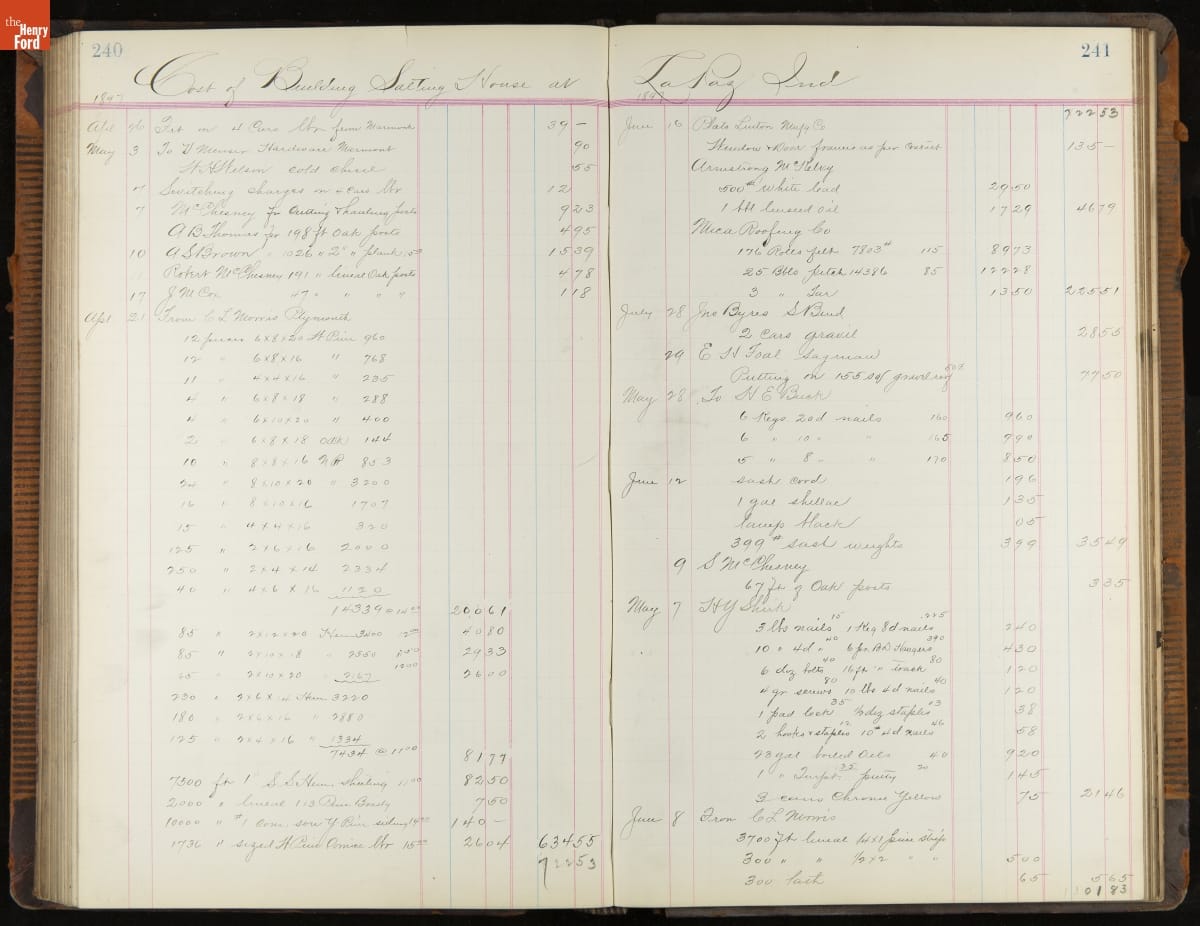 the Henry Ford
240
Cost of Building Salting House at
1897
Apr 26 Frt on 4 Cars lbr from Mermont 39 -
May 3 To D Menser Hardware Mermont 90
W. H. Wilson cold chisel 55
7 Switching charges on 4 cars lbr 12
7 McChesney for Cutting & hauling posts 923
A B Thomas for 198 ft Oak posts 495
10 A S Brown " 1026 " 2" " plank 15 00 1539
Robert McChesney 191 " lineal Oak posts 478
17 J M Cox 47 " " " " 118
Apr 21 From C L Morris Plymouth
12 pieces 6x8x20 W Pine 960
12 " 6x8x16 " 768
11 " 4x4x16 " 235
4 " 6x8x18 " 288
4 " 6x10x20 " 400
2 " 6x8x18 Oak 144
10 " 8x8x16 853
24 " 8x10x20 " 3200
16 " 8x10x16 1707
15 " 4x4x16 320
125 " 2x6x16 2000
250 " 2x4x14 2334
40 " 4x6x16 1120
14339 @ 14 00 20061
85 " 2x12x20 Hem 3400 12 00 4080
85 " 2x10x18 " 2550 11 50 2933
65 " 2x10x20 " 2167 12 00 2600
230 " 2x6x14 Hem 3220
180 " 2x6x16 " 2880
125 " 2x4x16 " 1334
7434 @ 11 00 8177
7500 ft 1" S.S. Hem. Sheeting 11 00 8250
2000 " lineal 1x3 Pine 750
10000 " #1 com. Y Pine siding 14 00 140 -
1736 " sized W Pine Cornice lbr 15 00 2604 63455
72253
241
La Paz Ind
1897
72253
June 16 Plato Linton Mnfg Co
Window & Door frames as per contrct 135 -
Armstrong McKelvy
500 # White lead 2950
1 bbl linseed oil 1729 4679
Mica Roofing Co
176 Rolls felt 7803 # 115 8973
25 Bbls pitch 14386 85 12228
3 " Tar 1350 22551
July 28 Jno Byres S Bend
2 Cars gravil 2855
29 E N Toal Saginaw
Putting on 155 sq gravel roof 50¢ 7750
May 28 To H E Buck
6 Kegs 20d nails 160 960
6 " 10 " " 165 990
5 " 8 " " 170 850
June 12 sash cord 196
1 gal shellac 135
lamp black 05
399 # sash weights 399 3549
9 S McChesney
67 ft of Oak posts 335
May 7 H Y Shirk
3 lbs nails 15 1 Keg 8d nails 225 240
10 " 4d " 40 6 pr. B.D. Hangers 390 430
6 doz bolts 40 16 ft " track 80 120
4 gr screws 80 10 lbs 4d nails 40 120
1 pad lock 35 ½ doz staples 03 38
2 hooks & staples 12 10 # 4d nails 46 58
23 gal boiled Oils 40 920
1 " Turpt. 35 putty 20 145
3 cans Chrome Yellow 75 2146
June 8 From C L Morris
3700 ft lineal ½x1 pine strips
300 " " ½x2 " " 500
300 lath 65 565
110183